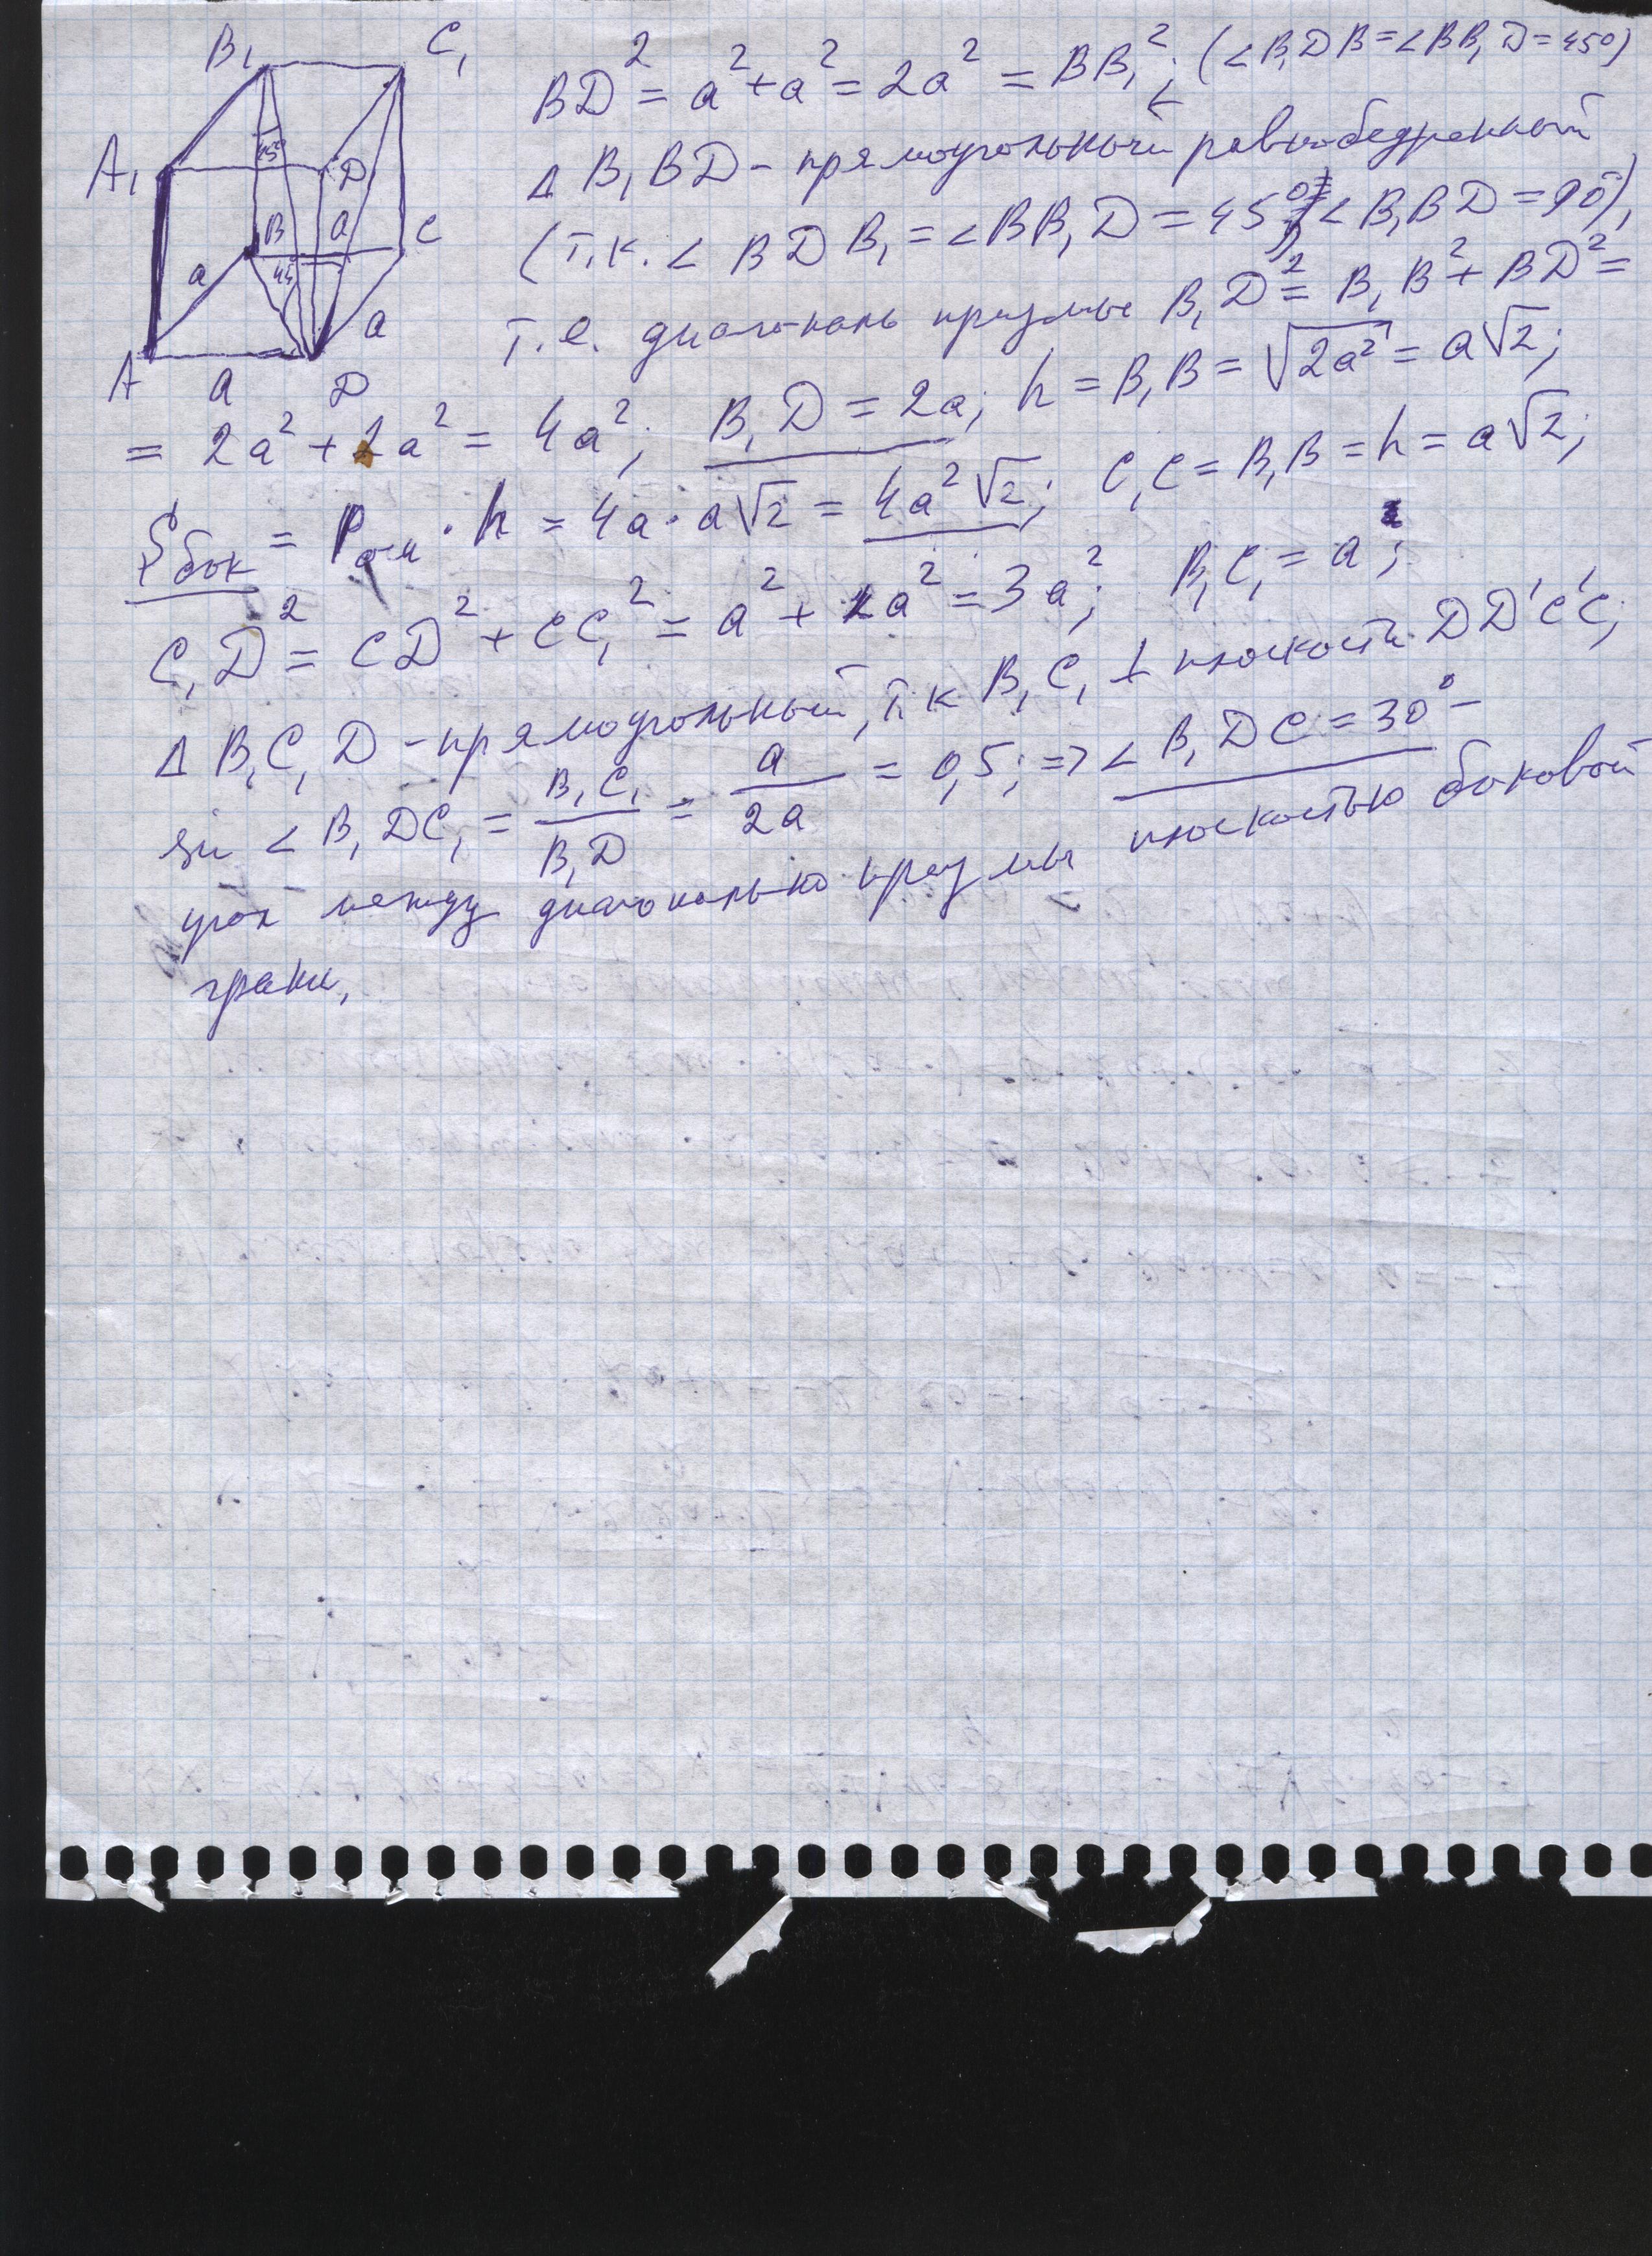 B₁ C₁
A₁ D₁
45°
B a C
a 45°
a
A a D
BD² = a² + a² = 2a² = BB₁²; (∠B₁DB = ∠BB₁D = 45°)
Δ B₁BD - прямоугольный равнобедренный
(т.к. ∠ BDB₁ = ∠BB₁D = 45°, ∠B₁BD = 90°),
т.е. диагональ призмы B₁D² = B₁B² + BD² =
= 2a² + 2a² = 4a²; B₁D = 2a; h = B₁B = √2a² = a√2;
Sбок = Pосн · h = 4a · a√2 = 4a²√2; C₁C = B₁B = h = a√2;
C₁D² = CD² + CC₁² = a² + 2a² = 3a²; B₁C₁ = a;
Δ B₁C₁D - прямоугольный, т.к B₁C₁ ⊥ плоскости DD'C'C;
sin ∠ B₁DC₁ = B₁C₁/B₁D = a/2a = 0,5; => ∠ B₁DC = 30° -
угол между диагональю призмы плоскостью боковой
грани,